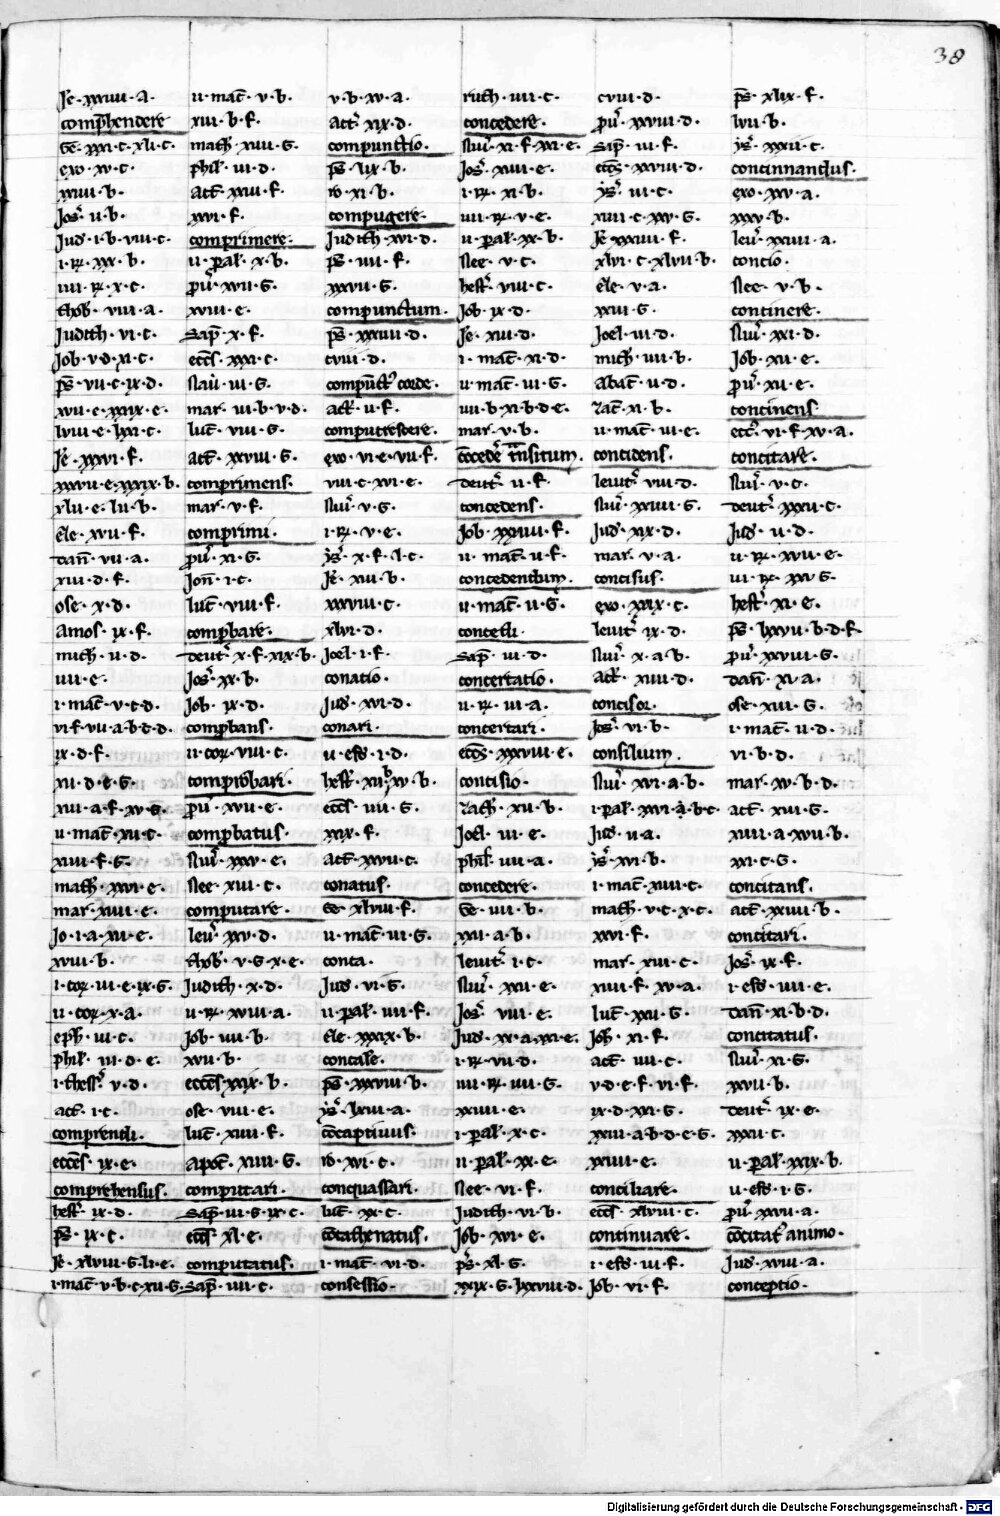 38
Je. xxiiii. a.
comp̄hendere
Ge. xxxi. c. xli. c.
exo. xv. c.
xxiii. b.
Jos. ii. b.
Jud. i. b. viii. c.
i. R. xxx. b.
iiii. R. x. c.
thob. viii. a.
Judith. vi. c.
Job. v. d. xi. c.
ps̄. vii. c. ix. d.
xvii. e. xxix. e.
lviii. e. lxxi. c.
Je. xxxvi. f.
xxxvii. e. xxxix. b.
xlii. e. lii. b.
ele. xvii. f.
dan̄. vii. a.
xiii. d. f.
ose. x. d.
amos. ix. f.
mich. ii. d.
iiii. e.
i. mac̄. v. c. d.
vi. f. vii. a. b. c. d.
ix. d. f.
xii. d. e. g.
xiii. a. f. xv. g.
ii. mac̄. xii. c.
xiiii. f. g.
math. xxvi. e.
mar. xiiii. e.
Jo. i. a. xii. e.
xviii. b.
i. cor. iii. e. ix. g.
ii. cor. x. a.
eph. iii. c.
phil. iii. d. e.
i. thess. v. d.
act. i. c.
comprendi.
ecc̄es. ix. e.
comprehensus.
hest. ix. d.
ps̄. ix. c.
Je. xlviii. g. li. e.
i. mac̄. v. b. c. xii. g.
ii. mac̄. v. b.
xiii. b. f.
math. xiii. g.
phil. iii. d.
act. xxiii. f.
xxvi. f.
comprimere.
ii. pal. x. b.
pū. xvii. g.
xviii. e.
Sap̄. x. f.
ecc̄s. xxxi. c.
Naū. iii. g.
mar. iii. b. v. d.
luc̄. viii. g.
act. xxviii. g.
comprimens.
mar. v. f.
comprimi.
pū. xi. g.
Jon̄. i. c.
luc̄. viii. f.
compbare.
deut. x. f. xix. b.
Jos. xx. b.
Job. ix. d.
compbans.
ii. cor. viii. c.
comprobari.
pū. xvii. e.
compbatus.
Nū. xxxv. e.
Nee. xiii. c.
computare.
leū. xxv. d.
thob. v. g. x. e.
Judith. x. d.
ii. R. xviii. a.
Job. iiii. b.
xvii. b.
ecc̄es. xxix. b.
ose. viii. e.
luc̄. xiiii. f.
apoc̄. xiii. g.
computari.
Sap̄. iii. g. ix. c.
ecc̄s. xl. e.
computatus.
Sap̄. iiii. c.
v. b. xv. a.
act. xix. d.
compunctio.
ps̄. lix. b.
ro. xi. b.
compugere.
Judith. xvi. d.
ps̄. iiii. f.
xxxvii. g.
compunctum.
ps̄. xxxiiii. d.
cviii. d.
compūct̄ corde.
act. ii. f.
computrescere.
exo. vi. e. vii. f.
viii. c. xvi. e.
Nū. v. g.
i. R. v. e.
ys̄. x. f. l. c.
Je. xiii. b.
xxxviii. c.
xlvi. d.
Joel. i. f.
conatio.
Jud. xvi. d.
conari.
ii. esd. i. d.
hest. xiii. xv. b.
ecc̄s. iiii. g.
xxix. f.
act. xxvii. c.
conatus.
Ge. xlviii. f.
ii. mac̄. vi. g.
conta.
Jud. vi. g.
ii. pal. iiii. f.
ele. xxxix. b.
concale.
ps̄. xxxviii. b.
ys̄. lxiii. a.
cōcaptivus.
ro. xvi. c.
conquassari.
luc̄. xx. c.
cōcathenatus.
i. mac̄. vi. d.
confessio.
ruth. iiii. c.
concedere.
Nū. xi. f. xxi. e.
Jos. xxiii. e.
i. R. xi. b.
iiii. R. v. e.
ii. pal. xx. b.
Nee. v. c.
hest. viii. c.
Job. ix. d.
Je. xvi. d.
i. mac̄. xi. d.
ii. mac̄. vi. g.
iiii. b. xi. b. d. e.
mar. v. b.
cōcedē̄ trānsitum.
deut. ii. f.
concedens.
Job. xxxiiii. f.
ii. mac̄. ii. f.
concedendum.
ii. mac̄. ii. g.
concessi.
Sap̄. iii. d.
concertatio.
ii. R. iii. a.
concertari.
ecc̄s. xxxviii. e.
concisio.
zach. xii. b.
Joel. iii. e.
phil. iiii. a.
concedere.
Ge. iiii. b.
xxi. a. b.
leuit. i. c.
Nū. xxi. e.
Jos. viii. e.
Jud. xx. a. xxi. e.
i. R. vii. d.
iiii. R. iiii. g.
xxiiii. e.
i. pal. x. c.
ii. pal. xx. e.
Nee. vi. f.
Judith. vi. b.
Job. xvi. e.
ps̄. xl. g.
xxix. g. lxxviii. d.
cviii. d.
pū. xxviii. d.
Sap̄. iii. f.
ecc̄s. xxviii. d.
ys̄. vi. c.
xiiii. c. xxv. g.
Je. xxxiii. f.
xlvi. c. xlvii. b.
ele. v. a.
xxii. g.
Joel. iii. d.
mich. iiii. b.
abac̄. ii. d.
zac̄. xi. b.
ii. mac̄. iii. e.
concidens.
leuit. viii. d.
Nū. xxiiii. g.
Jud. xix. d.
mar. v. a.
concisus.
exo. xxix. c.
leuit. ix. d.
Nū. x. a. b.
act. xiii. d.
concisor.
Jos. vi. b.
consilium.
Nū. xvi. a. b.
i. pal. xvi. a. b. c.
Jud. ii. a.
ys̄. xvi. b.
i. mac̄. xiii. c.
math. v. c. x. c.
xxvi. f.
mar. xiii. c.
xiiii. f. xv. a.
luc̄. xxi. g.
Joh. xi. f.
act. iiii. c.
v. d. e. f. vi. f.
ix. d. xxi. g.
xxii. a. b. d. e. g.
xxiii. e.
conciliare.
ecc̄s. xlviii. c.
continuare.
i. esd. iii. f.
Job. vi. f.
ps̄. xlix. f.
lvii. b.
ys̄. xxxii. c.
concinnandus.
exo. xxv. a.
xxxv. b.
leū. xxiiii. a.
concio.
Nee. v. b.
continere.
Nū. xxi. d.
Job. xii. e.
pū. xii. e.
continens.
ecc̄. vi. f. xv. a.
concitare.
Nū. v. c.
deut. xxxii. c.
Jud. ii. d.
ii. R. xvii. e.
iii. R. xxv. g.
hest. xi. e.
ps̄. lxxvii. b. d. f.
pū. xxviii. g.
dan̄. xi. a.
ose. xiii. g.
i. mac̄. ii. d.
vi. b. d.
mar. xv. b. d.
act. xiii. g.
xiiii. a. xvii. b.
xxi. c. g.
concitans.
act. xxiiii. b.
concitari.
Jos. ix. f.
i. esd. iiii. e.
dan̄. xi. b. d.
concitatus.
Nū. xi. g.
xxvii. b.
deut. ix. e.
xxxii. c.
ii. pal. xxix. b.
ii. esd. i. g.
pū. xxvi. a.
cōcitat̄ animo.
Jud. xviii. a.
conceptio.
Digitalisierung gefördert durch die Deutsche Forschungsgemeinschaft - DFG